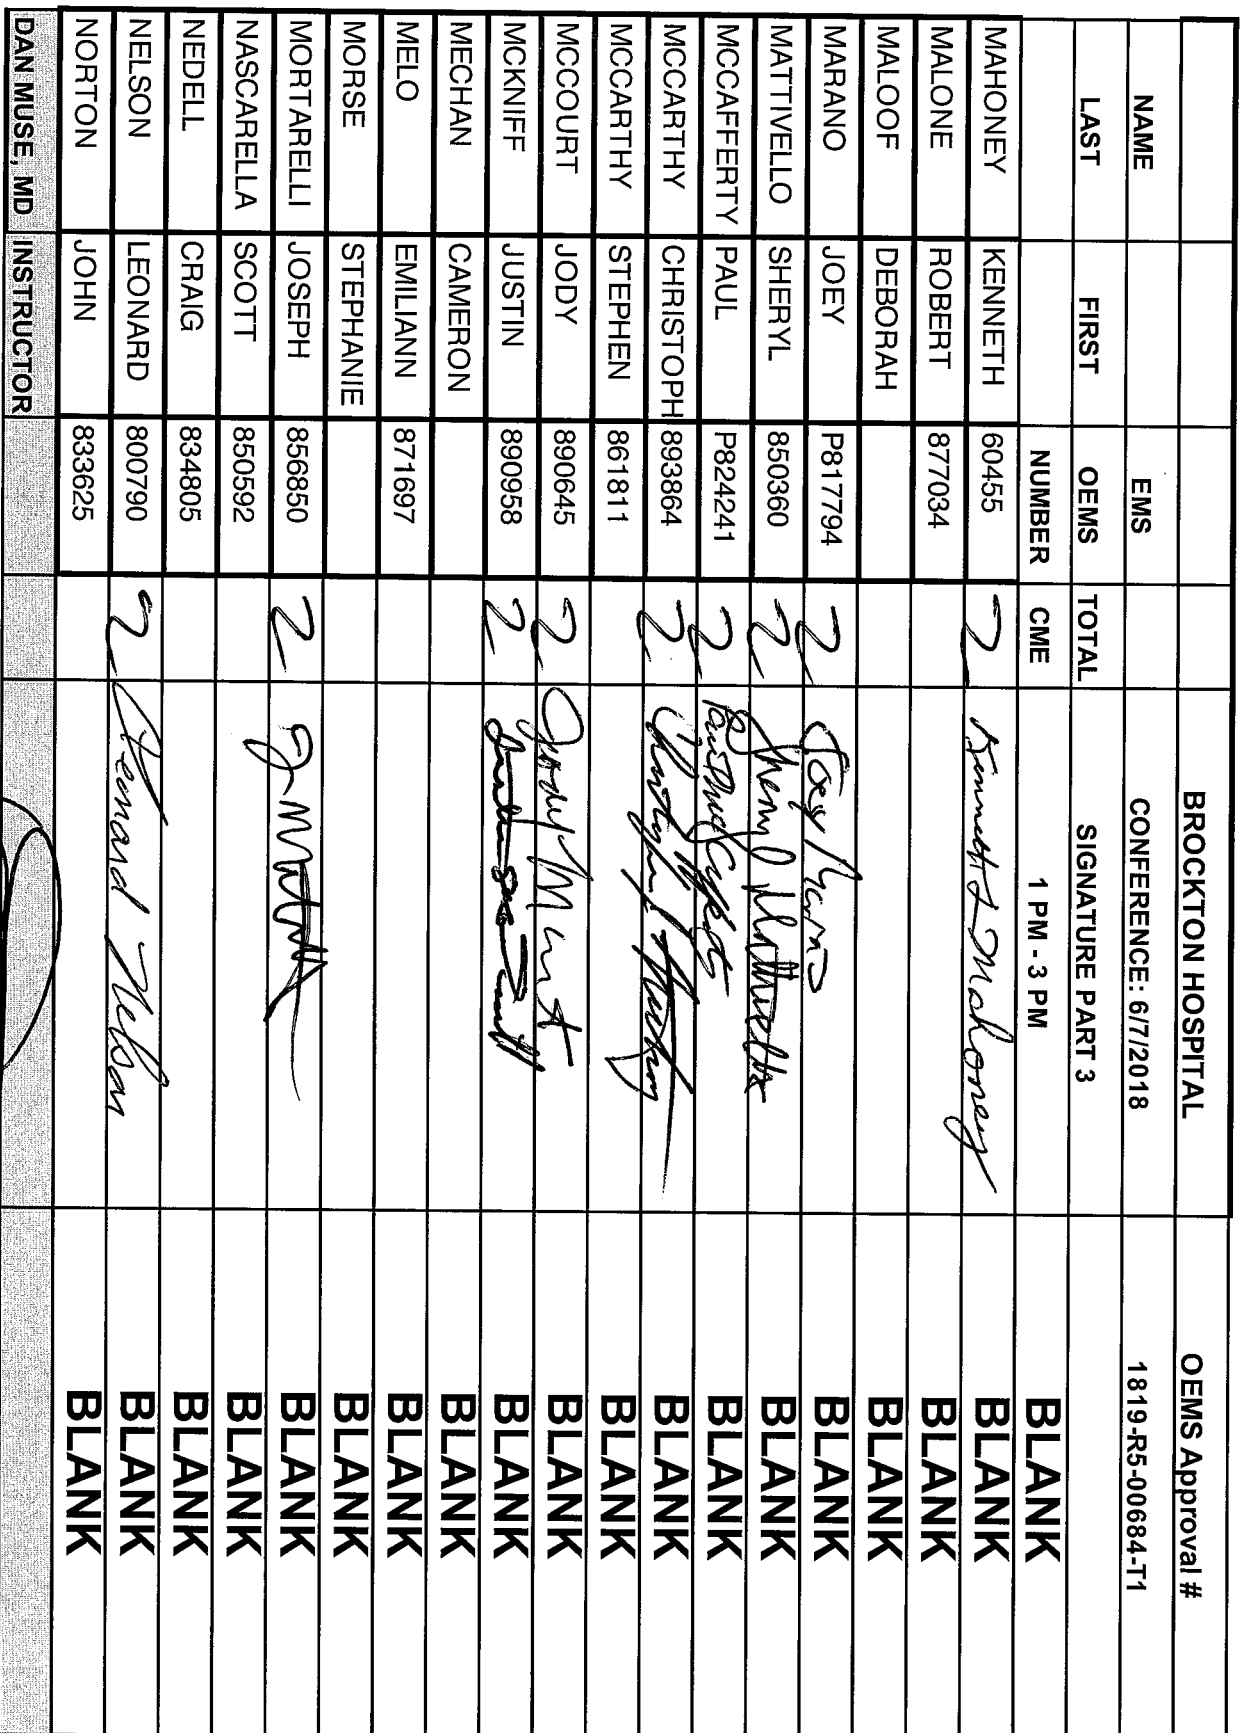 BROCKTON HOSPITAL OEMS Approval #
NAME EMS CONFERENCE: 6/7/2018 1819-R5-00684-T1
LAST FIRST OEMS TOTAL SIGNATURE PART 3
NUMBER CME 1 PM - 3 PM BLANK
MAHONEY KENNETH 60455 2 Kenneth Mahoney BLANK
MALONE ROBERT 877034 BLANK
MALOOF DEBORAH BLANK
MARANO JOEY P817794 2 Joey BLANK
MATTIVELLO SHERYL 850360 2 Sheryl Mattivello BLANK
MCCAFFERTY PAUL P824241 2 Paul McCafferty BLANK
MCCARTHY CHRISTOPH 893864 2 BLANK
MCCARTHY STEPHEN 861811 BLANK
MCCOURT JODY 890645 2 Jody BLANK
MCKNIFF JUSTIN 890958 2 BLANK
MECHAN CAMERON BLANK
MELO EMILIANN 871697 BLANK
MORSE STEPHANIE BLANK
MORTARELLI JOSEPH 856850 2 BLANK
NASCARELLA SCOTT 850592 BLANK
NEDELL CRAIG 834805 BLANK
NELSON LEONARD 800790 2 Leonard Nelson BLANK
NORTON JOHN 833625 BLANK
DAN MUSE, MD INSTRUCTOR